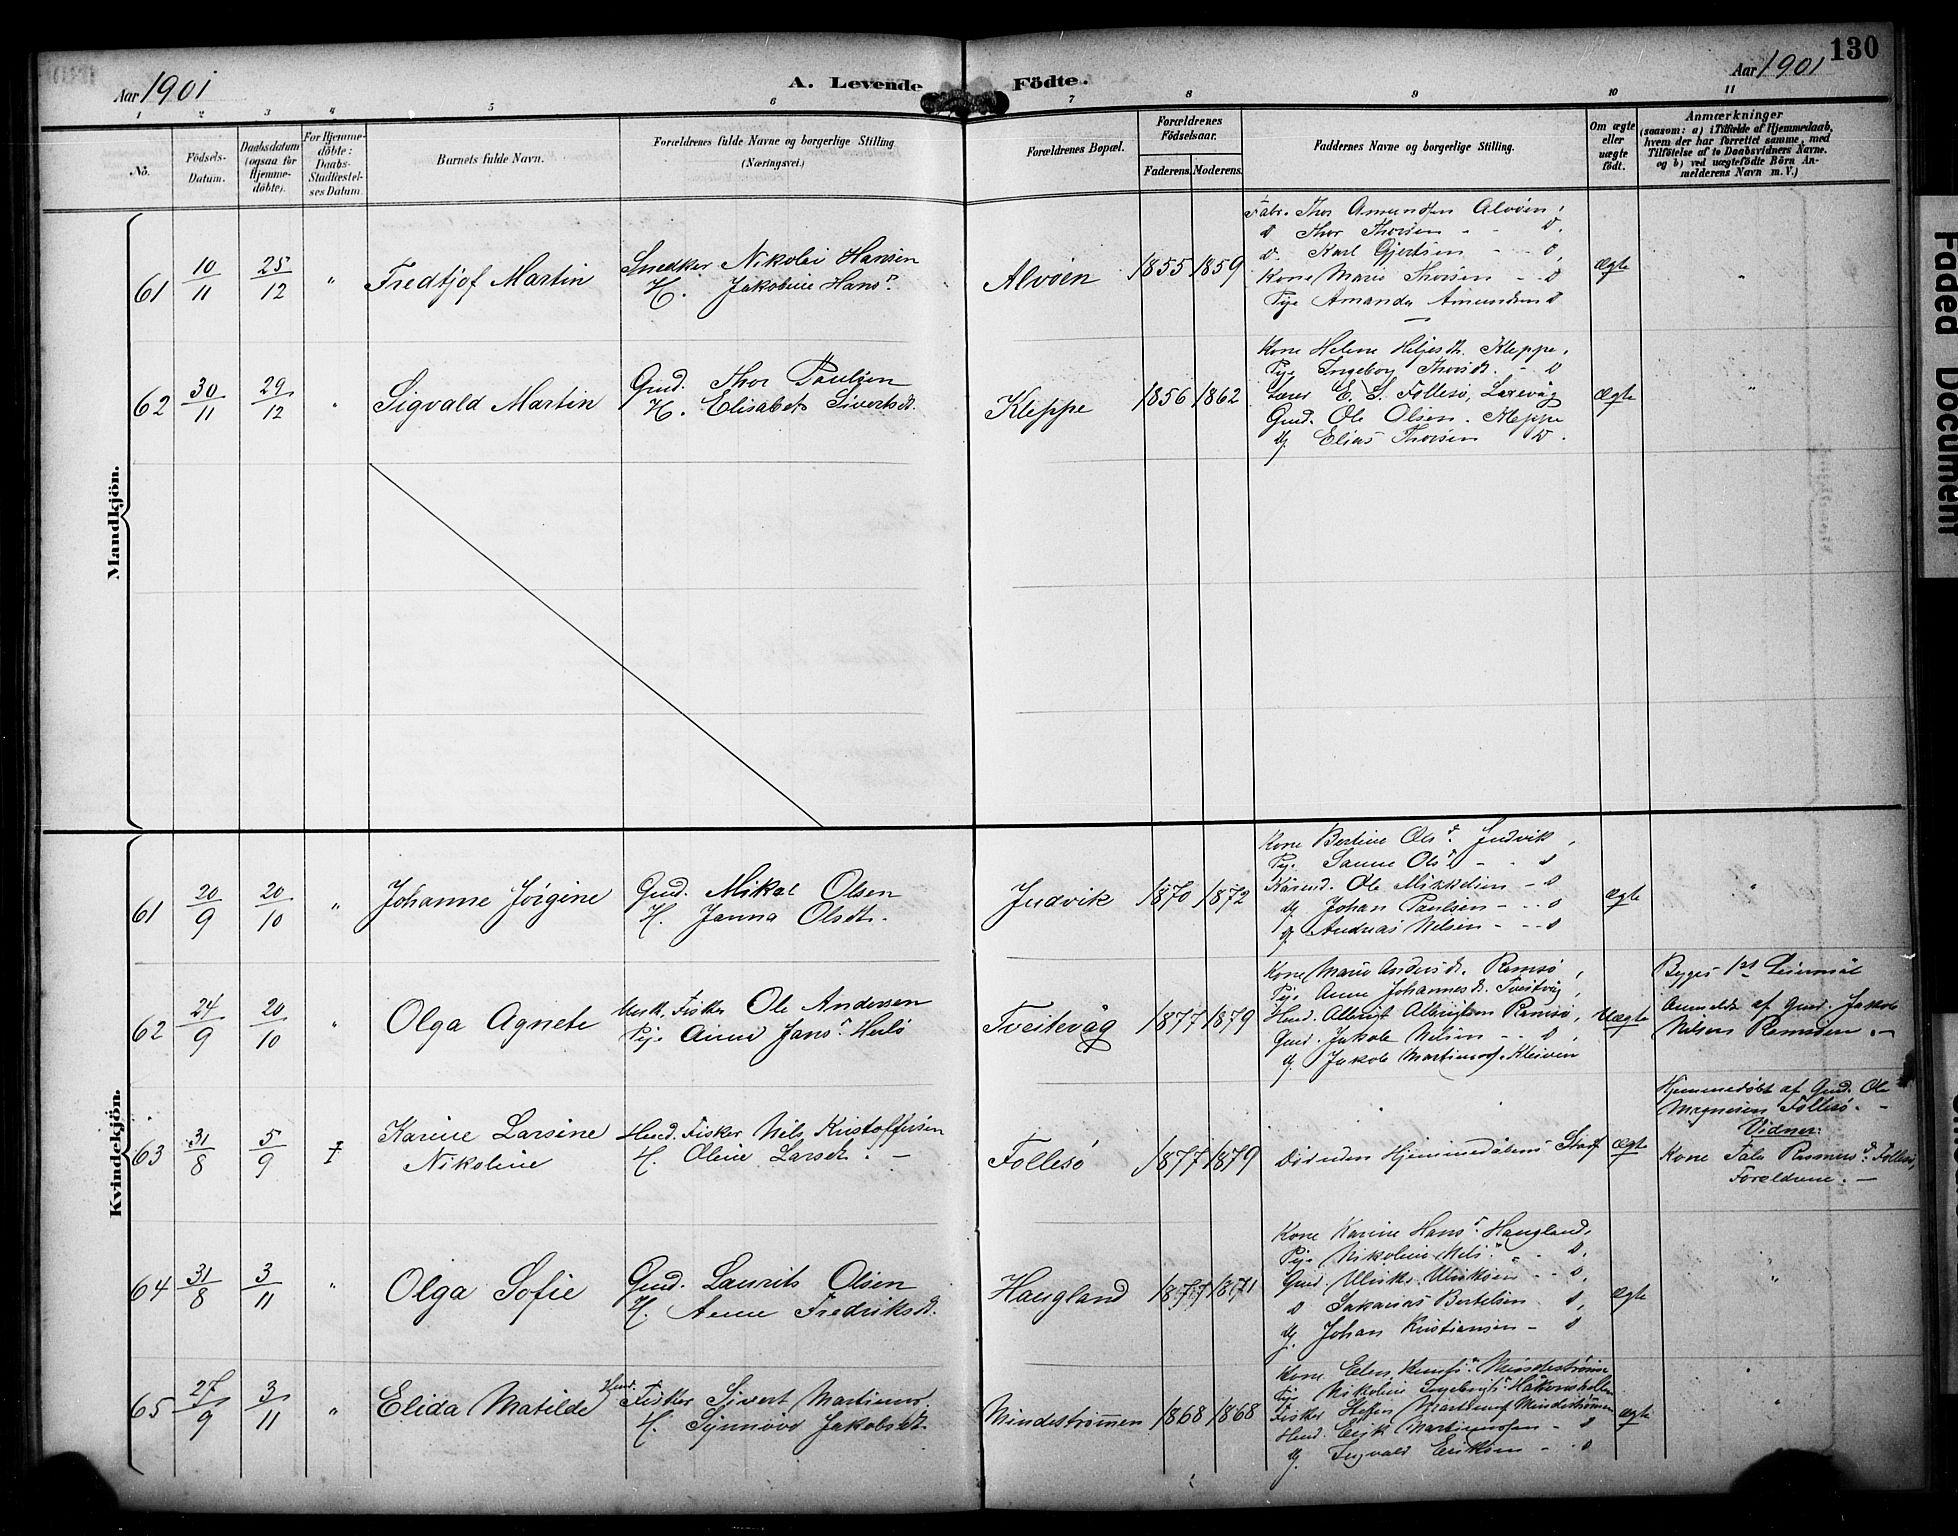 130
Aar 1901
A. Levende Fødte.
Aar 1901
1 2 3 4 5 6 7 8 9 10 11
No.
Födsels-Datum.
Daabsdatum (ogsaa for Hjemme-döbte).
For Hjemme-döbte: Daabs-Stadfæstel-ses Datum.
Barnets fulde Navn.
Forældrenes fulde Navne og borgerlige Stilling (Næringsvei.)
Forældrenes Bopæl.
Forældrenes Födselsaar.
Faderens. Moderens.
Faddernes Navne og borgerlige Stilling.
Om ægte eller uægte født.
Anmærkninger
(saasom: a) i Tilfælde af Hjemmedaab,
hvem der har forrettet samme, med
Tilföielse af to Daabsvidners Navne.
og b) ved uægtefödte Börn An-
melderens Navn m. V.)
Mandkjön.
61 10/11 25/12 " Fredtjof Martin
Snedker Nikolai Hansen
H. Jakobine Hansd.
Alvøen 1855 1859
Fabr. Thor Amundsen Alvøen,
D Thor Thorsen - - D.
D. Karl Gjertsen - - D,
Kone Marie Thorsen - - D
Pige Amanda Amundsen D
Ægte "
62 30/11 29/12 " Sigvald Martin
Gmd. Thor Paulsen
H. Elisabet Sivertsdt.
Kleppe 1856 1862
Kone Helene Heljesdt. Kleppe,
Pige Ingeborg Thorsdt. - D
Lærer E. S. Follesø, Laxevåg
Gmd. Ole Olsen - Kleppe
Ug. Elias Thorsen D.
Ægte "
Kvindekjön.
61 20/9 20/10 " Johanne Jørgine
Gmd. Mikal Olsen
H. Janna Olsdt.
Judvik 1870 1872
Kone Bertine Olsd. Judvik,
Pige Sanne Olsd. - - D
Kårmd. Ole Mikkelsen - D
Ug Johan Paulsen - - D
Ug Andreas Nilsen - - D
Ægte "
62 24/9 20/10 " Olga Agnete
Fisker Ole Andersen
Pige Anne Jansd. Herlø
Tveitevåg 1877 1879
Kone Marie Andersdt. Ramsø,
Pige Anne Johannesdt. Tveitvåg,
Husd. Albrigt Albrigtsen Ramsø,
Gmd. Jakob Nilsen - - D,
Ug. Jakob Martinuss. Kleiven
Uægte
Begges 1ste Leiermål
Anmeldt af Gmd. Jakob
Nilsen Ramsøen. -
63 31/8 5/9 ‡ Karine Larsine
Nikoline
Husd. Fisker Nils Kristoffersen
H. Oline Larsdt. -
Follesø 1877 1879
Død uden Hjemmedåbens Stadf
Ægte
Hjemmedøbt af Gmd. Ole
Magnesen Follesø. -
Vidner:
Kone Tale Rasmusd. Follesø,
Forældrene. -
64 31/8 3/11 " Olga Sofie
Gmd. Laurits Olsen
H. Anne Fredriksdt.
Haugland 1877 1871
Kone Karine Hansd. Haugland,
Pige Nikoline Nilsd. - D.
Gmd. Ulrik Ulriksen - - D,
D Sakarias Bertelsen D,
Ug. Johan Kristiansen - D
Ægte "
65 27/9 3/11 " Elida Matilde
Husd. Fisker Sivert Martinus.
H. Synnøve Jakobsdt.
Mindestrømmen 1868 1868
Kone Elen Knudsd. Mindestrømm
Pige Nikoline Ingebrigtsd. Håkonshellen
Fisker Steffen Martinus Mindestrømmen
Husd. Erik Martinussen - D
Ug. Ingvald Eriksen - - D
Ægte "
Faded Document